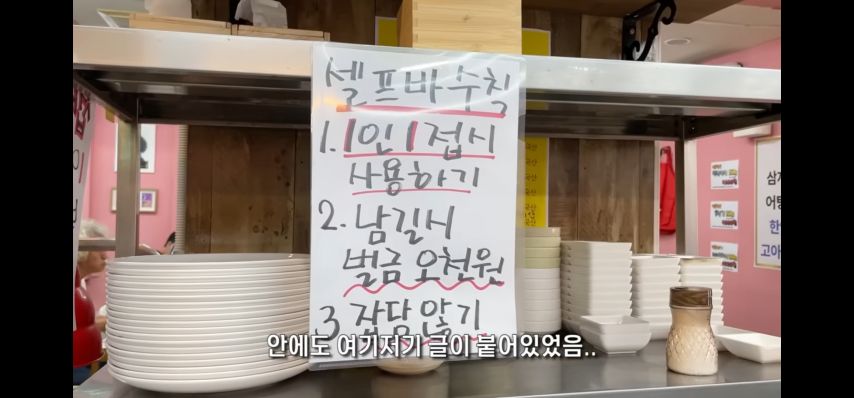 셀프바 수칙
1. 1인 1접시
사용하기
2. 남길시
벌금 오천원
3 잡담않기
안에도 여기저기 글이 붙어있었음..